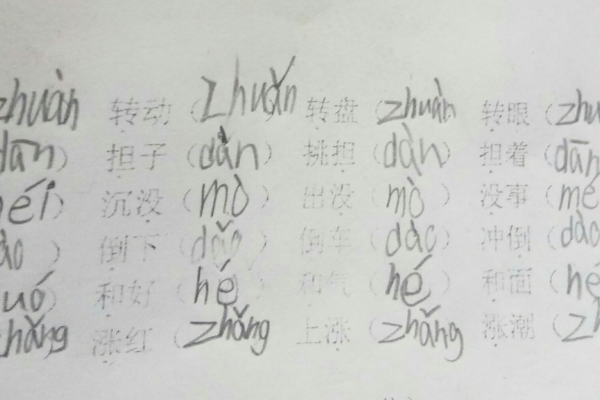 zhuàn 转动（zhuǎn 转盘（zhuàn 转眼（zhu
dān） 担子（dàn） 挑担（dàn） 担着（dān
éi） 沉没（mò） 出没（mò） 没事（mé
ào） 倒下（dǎo） 倒车（dào） 冲倒（dào
uó） 和好（hé） 和气（hé） 和面（hé
zhǎng 涨红（zhǎng 上涨（zhǎng 涨潮（zh